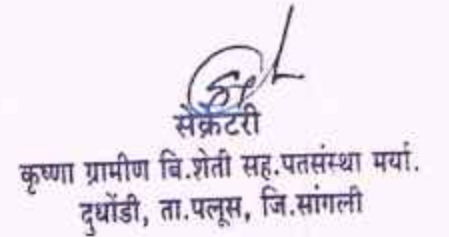 सेक्रेटरी
कृष्णा ग्रामीण बि.शेती सह.पतसंस्था मर्या.
दुधोंडी, ता.पलूस, जि.सांगली